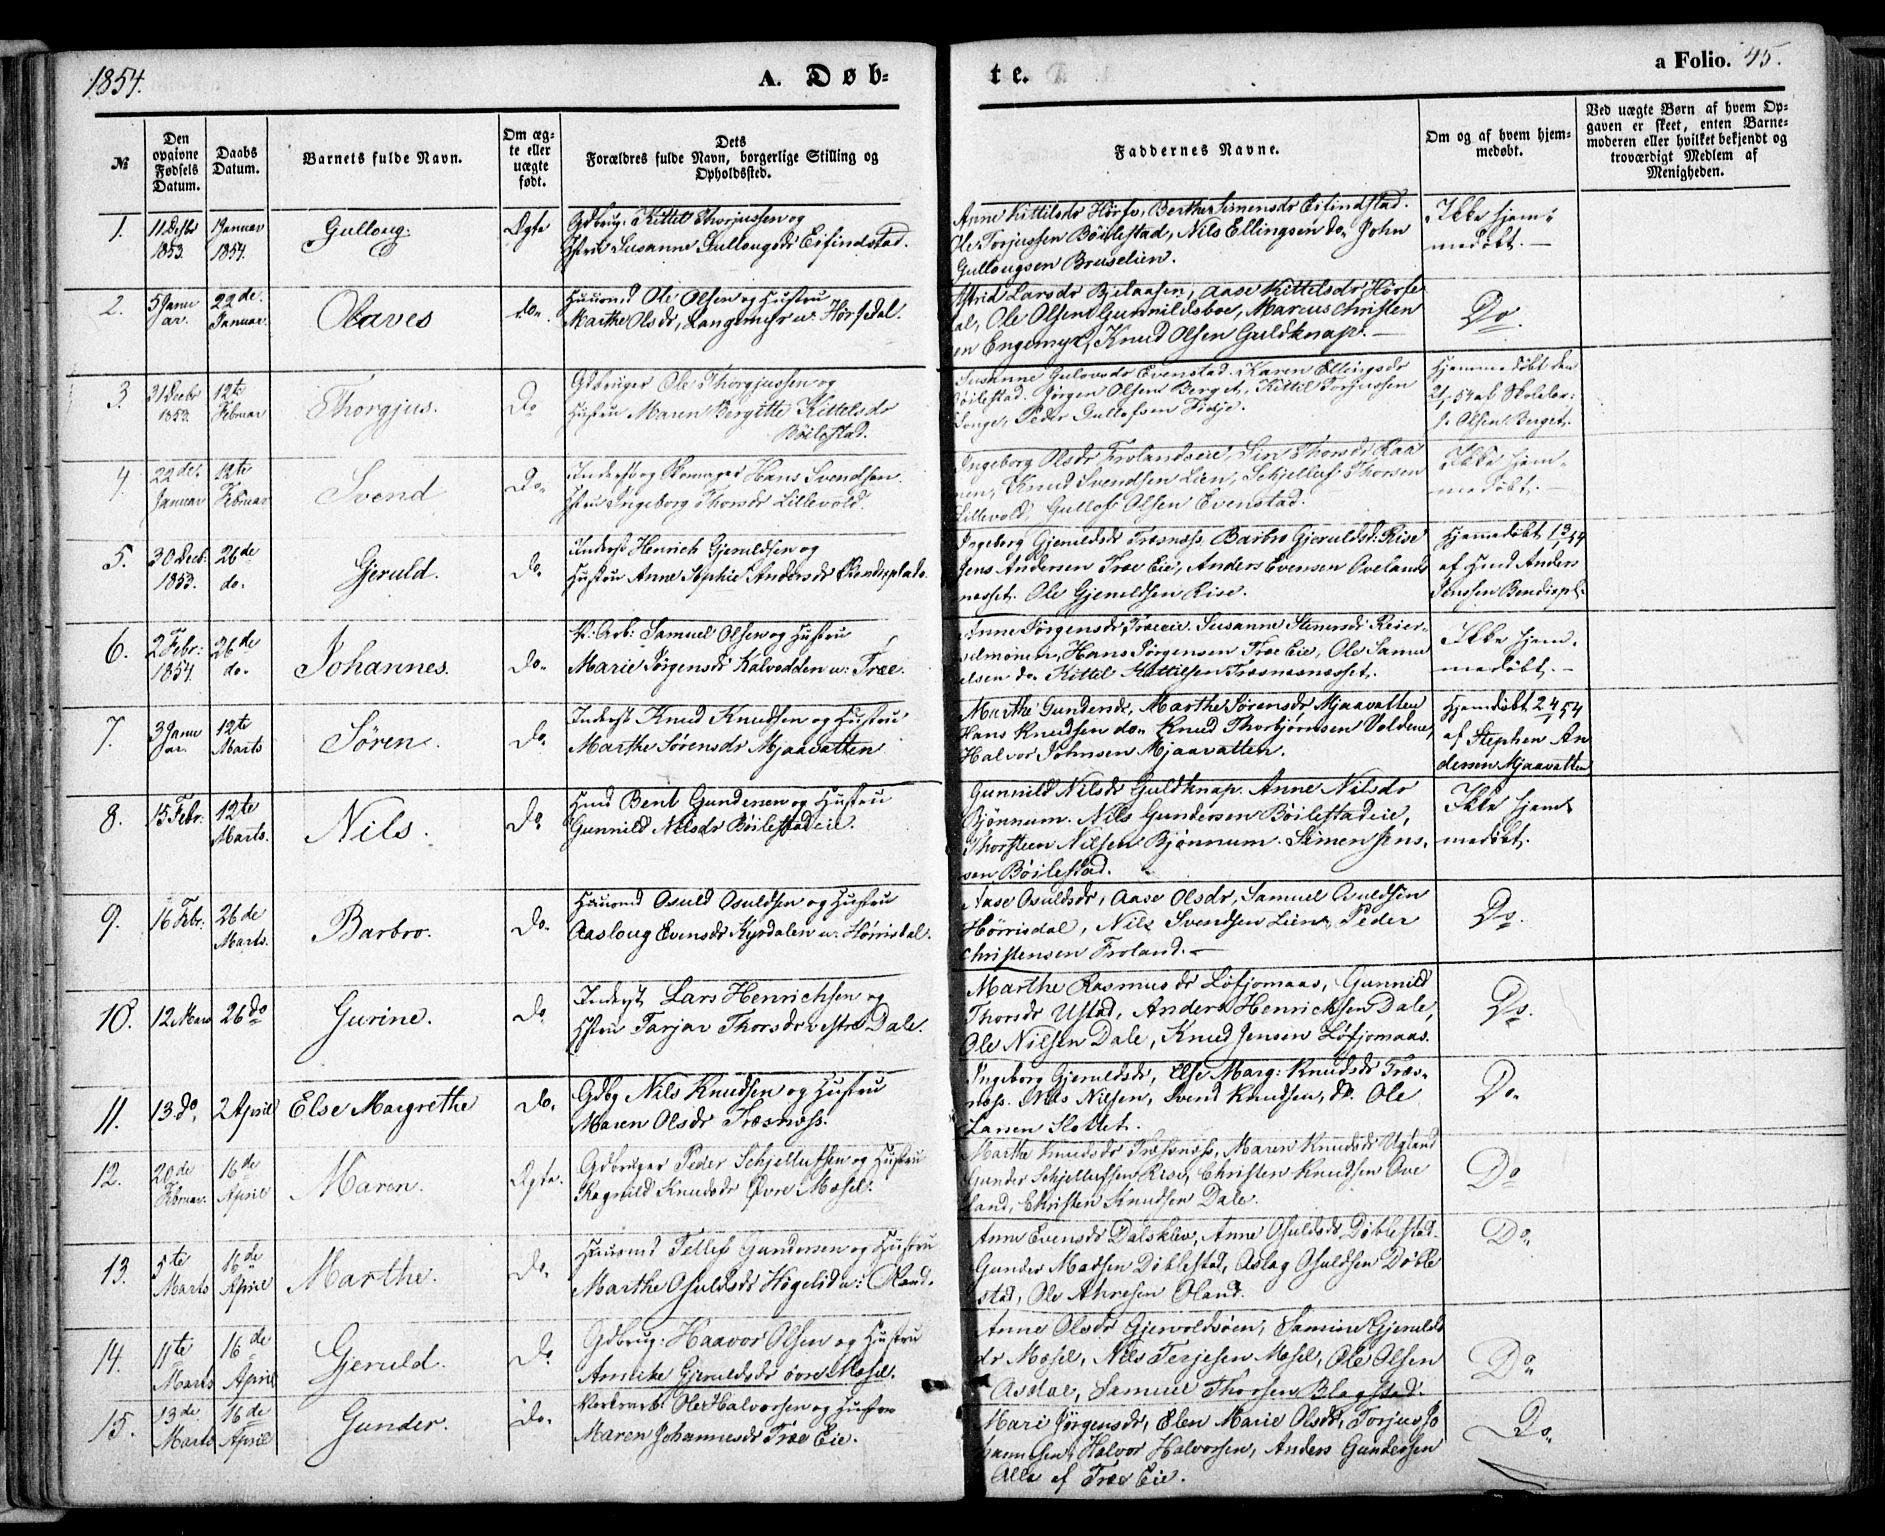 1854.
A. Døb-
te.
a Folio. 45.
№
Den opgivne Fødsels Datum.
Daabs Datum.
Barnets fulde Navn.
Om ægte eller uægte født.
Dets
Forældres fulde Navn, borgerlige Stilling og
Opholdssted.
Faddernes Navne.
Om og af hvem hjem-
medøbt.
Ved uægte Børn af hvem Op-
gaven er skeet, enten Barne-
moderen eller hvilket bekjendt og
troværdigt Medlem af
Menigheden.
1.
11 Decbr 1853.
1 Januar 1854.
Gulloug.
Ægte
Gdbrug. Kittel Thorjussen og
Hstru Susanne Gullougsdr Eifindstad.
Anne Kittilsdr Hörfs, Berthe Simensdr Eifindstad.
Ole Torjussen Böilestad, Nils Ellingsen do John
Gullougsen Bruselien.
Ikke hjem-
medøbt.
2.
5 Janu
ar.
22de
Januar.
Olaves
do
Huusmd Ole Olsen og Hustru
Marthe Olsdr, Langemyr u. Hörfsdal.
Astrid Larsdr Bjelaasen, Aase Kittelsdr Hörfs
dal, Ole Olsen Gunnildsboe, Marcus Christen
sen Engemyr, Knud Olsen Guldknap.
Do.
3.
31 Decbr
1853.
12te
Februar
Thorgjus.
Do
Gdbruger Ole Thorgjussen og
Hustru Maren Bergitte Kittelsdr
Böilestad.
Susanne Gulovsdr Evenstad. Karen Ellingsdr
Böilestad. Jörgen Olsen Berget, Kittil Torjussen
Songe, Peder Gullofsen
Hjemmedøbt den
2/1 54 af Skolelær:
J. Olsen Berget.
4.
22de
Januar
12te
Februar
Svend
Do
Inderst og Skomager Hans Svendsen
Hstru Ingeborg Thorsdr Lillevold.
Ingeborg Olsdr Frolandseie, Siri Thorsdr Raa
nen, Knud Svendsen Lien, Schjellof Thorsen
Lillevold, Gullof Olsen Evenstad.
Ikke hjem-
medøbt.
5.
30 Decb:
1853.
26de
do.
Gjeruld.
Do
Inderst Henrich Gjeruldsen og
Hustru Anne Sophie Andersdr Bendixplads.
Ingeborg Gjeruldsdr Træsnæss. Barbro Gjeruldsd: Rise
Jens Andersen Træ Eie, Anders Evensen Ovelands
næsset. Ole Gjeruldsen Rise.
Hjemedøbt 1 3/54
af Hmd Anders
Jenssen Bendixpl.
6.
2 Febr:
1854.
26de
do.
Johannes.
Do
P: Arb: Samuel Olsen og Hustru
Marie Jörgensdr Kalvedden u: Træ.
Anne Jörgensdr Træeie. Susanne Stenersdr Reier-
selmonen, Hans Jörgensen Træ Eie, Ole Samu
elsen do. Kittil Kittilsen Træsnæsnæsset.
Ikke hjem-
medøbt.
7.
3 Janu
ar.
12te
Marts
Sören.
Do
Inderst Knud Knudsen og Hustru
Marthe Sörensdr Mjaavatten
Marthe Gundersdr, Marthe Sörensdr Mjaavatten
Hans Knudsen do Knud Thorbjörnsen Voldene,
Halvor Johnsen Mjaavatten.
Hjemdøbt 2 4/1 54
af Stephen An
dersen Mjaavatten
8.
15 Febr:
12te
Marts.
Nils.
Do
Hmd Bent Gundersen og Hustru
Gunnild Nilsdr Böilestadeie.
Gunnild Nilsdr Guldknap. Anne Nilsdr
Bjönnum. Nils Gundersen Böilestadeie,
Thorsteen Nilsen Bjönnum. Simen Jens-
sen Böilestad.
Ikke hjem
medøbt.
9.
16 Febr:
26de
Marts.
Barbro.
Do
Huusmd Osuld Osuldsen og Hustru
Aasloug Evensdr Kyrdalen u. Hörrisdal.
Aase Osuldsdr, Aase Olsdr, Samuel Osuldsen
Hörrisdal, Nils Svendsen Lien, Peder
Christensen Froland.
Do.
10.
12 Mars
26 do
Gurine.
Do
Inderst Lars Henrichsen og
Hstru Tarjar Thorsdr vestre Dale.
Marthe Rasmusdr Löfjomaas, Gunnild
Thorsdr Ustad, Anders Henrichsen Dale,
Ole Nilsen Dale, Knud Jensen Löfjomaas.
Do.
11.
13 do
2 April
Else Margrethe
Do.
Gdbg Nils Knudsen og Hustru
Maren Olsdr Træsnæss.
Ingeborg Gjeruldsdr, Else Marg: Knudsdr Træs-
næss. Nils Nilsen, Svend Knudsen, do. Ole
Larsen Slottet.
Do
12.
20de
Februar.
16de
April
Maren.
Ægte.
Gdbruger Peder Schjellufsen og Hustru
Ragnild Knudsdr Øvre Mosel.
Marthe Knudsdr Træsnæss, Maren Knudsdr Ugland
Gunder Schjellufsen Rise, Christen Knudsen Ove
land, Christen Knudsen Dale.
Do
13.
5te
Marts
16de
April
Marthe.
Do
Huusmd Tellef Gundersen og Hustru
Marthe Osuldsdr Högelid u:
Anne Evensdr Dalsklev, Anne Osuldsdr Döblestad.
Gunder Madsen Döblestad, Aslag Osuldsen Döble
stad, Ole Ahresen Öland.
Do
14.
11te
Marts
16de
April
Gjeruld.
Do
Gdbrug. Haavor Olsen og Hustru
Anneke Gjeruldsdr övre Mosel.
Anne Olsdr Gjervoldsöen, Samine Gjerulds
dr Mosel, Nils Terjesen Mosel, Ole Olsen
Asdal, Samuel Thorsen Blagstad.
Do
15.
13de
Marts
16de
April
Gunder.
Do
Verksarb. Ole Halvorsen og Hustru
Maren Johannesdr Træ Eie.
Mari Jörgensdr, Elen Marie Olsdr, Torjus Jo
hannsen, Halvor Halvorsen, Anders Gundersen
Alle af Træ Eie.
Do